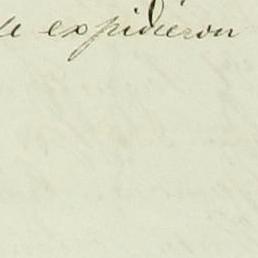 le expidieron